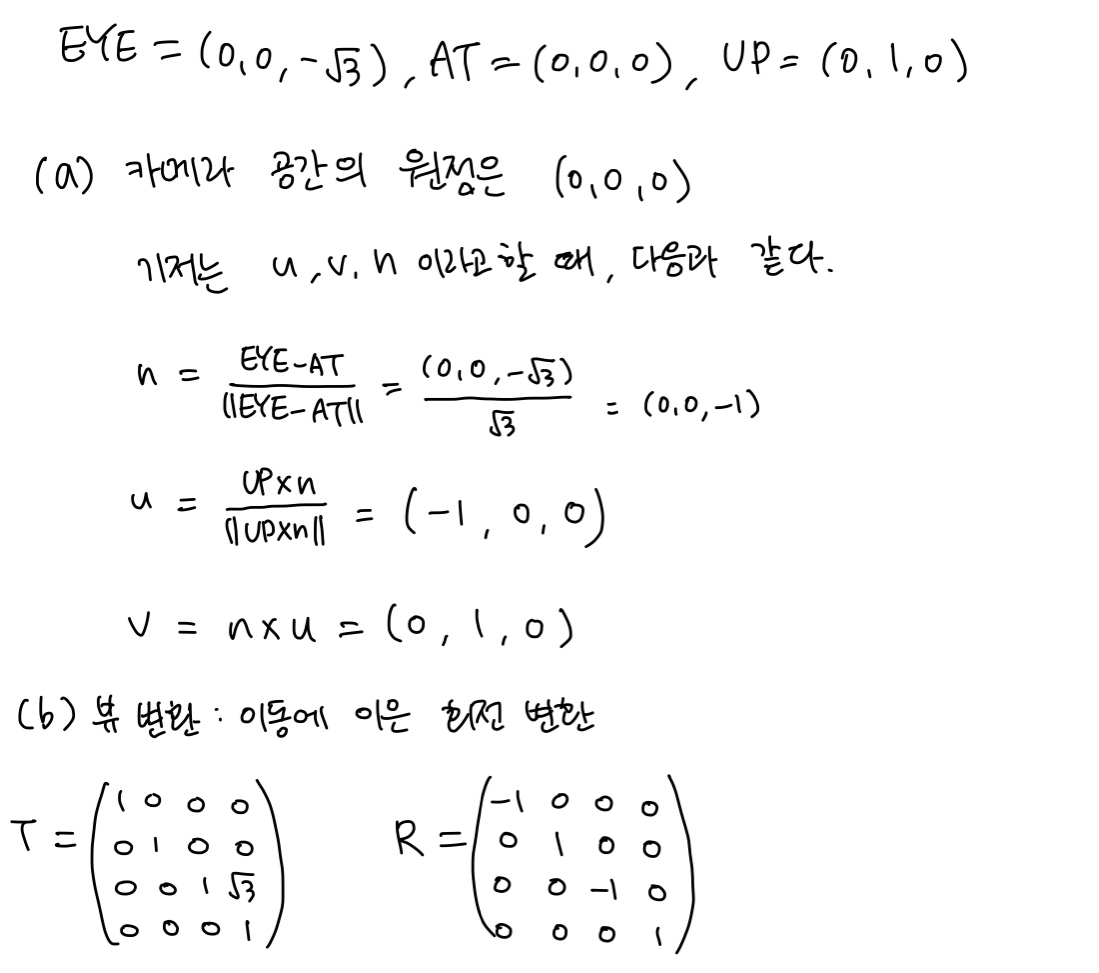 EYE = (0,0,-√3), AT = (0,0,0), UP = (0,1,0)
(a) 카메라 공간의 원점은 (0,0,0)
기저는 u,v,n 이라고 할 때, 다음과 같다.
n = EYE-AT / ||EYE-AT|| = (0,0,-√3) / √3 = (0,0,-1)
u = UP×n / ||UP×n|| = (-1,0,0)
v = n×u = (0,1,0)
(b) 뷰 변환 : 이동에 이은 회전 변환
T = (1 0 0 0 R = (-1 0 0 0
0 1 0 0 0 1 0 0
0 0 1 √3 0 0 -1 0
0 0 0 1) 0 0 0 1)